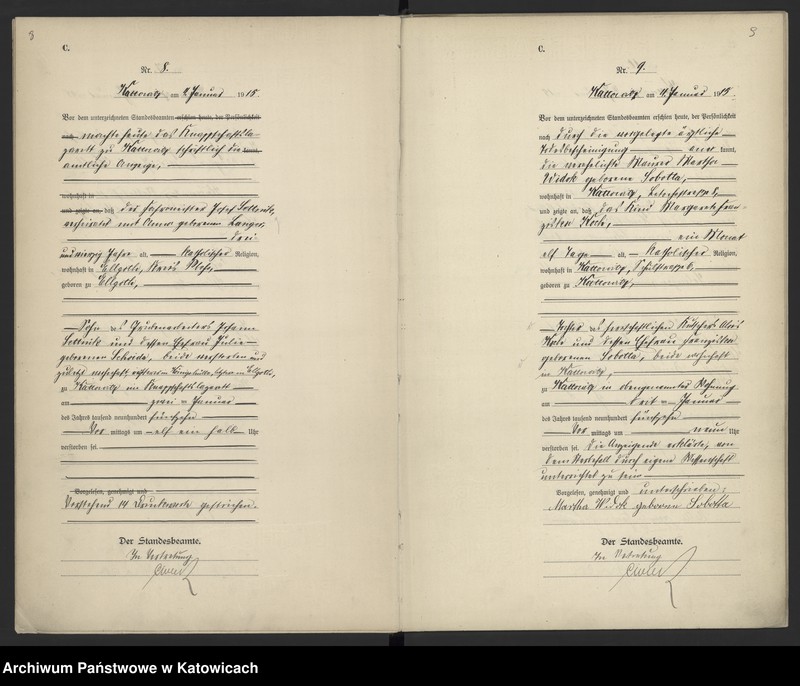 8
C.
Nr. 8.
Kattowitz am 2. Januar 1915.
Vor dem unterzeichneten Standesbeamten erschien heute, der Persönlichkeit
nach machte heute das Knappschaftsla-
zarett zu Kattowitz schriftlich die kannt,
amtliche Anzeige,
wohnhaft in
und zeigte an, daß der Fahrwächter Josef Sottnik,
verheiratet mit Anna geborenen Langer,
drei
undvierzig Jahre alt, katholischer Religion,
wohnhaft in Ellgoth, Kreis Pleß,
geboren zu Ellgoth,
Sohn des Johann
Sottnik und dessen Ehefrau Julie
geborenen beide verstorben und
zuletzt wohnhaft
zu Kattowitz im Knappschaftslazarett
am zwei ten Januar
des Jahres tausend neunhundert fünfzehn
Vor mittags um elf ein halb Uhr
verstorben sei.
Vorgelesen, genehmigt und
Vorstehend 14 Druckworte gestrichen.
Der Standesbeamte.
In Vertretung
9
C.
Nr. 9.
Kattowitz am 4. Januar 1915.
Vor dem unterzeichneten Standesbeamten erschien heute, der Persönlichkeit
nach durch die vorgelegte ärztliche
Todesbescheinigung aner kannt,
die verehelichte Maurer Martha
Widok geborene Sobotta,
wohnhaft in Kattowitz,
und zeigte an, daß das Kind Margarete Fran-
ziska Koch,
ein Monat
elf Tage alt, katholischer Religion,
wohnhaft in Kattowitz,
geboren zu Kattowitz,
Tochter des herrschaftlichen Kutschers Alois
Koch und dessen Ehefrau Franziska
geborenen Sobotta, beide wohnhaft
in Kattowitz,
zu Kattowitz in obengenannter Wohnung
am drit ten Januar
des Jahres tausend neunhundert fünfzehn
Vor mittags um neun Uhr
verstorben sei. Die Anzeigende erklärte, von
dem Sterbefall durch eigene Wissenschaft
unterrichtet zu sein
Vorgelesen, genehmigt und unterschrieben:
Martha Widok geborene Sobotta
Der Standesbeamte.
In Vertretung
Archiwum Państwowe w Katowicach